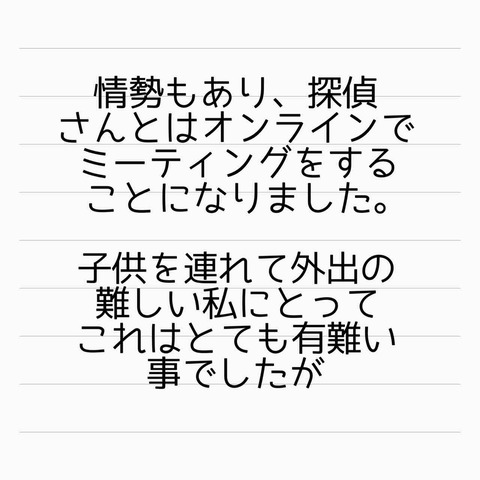 情勢もあり、探偵
さんとはオンラインで
ミーティングをする
ことになりました。
子供を連れて外出の
難しい私にとって
これはとても有難い
事でしたが